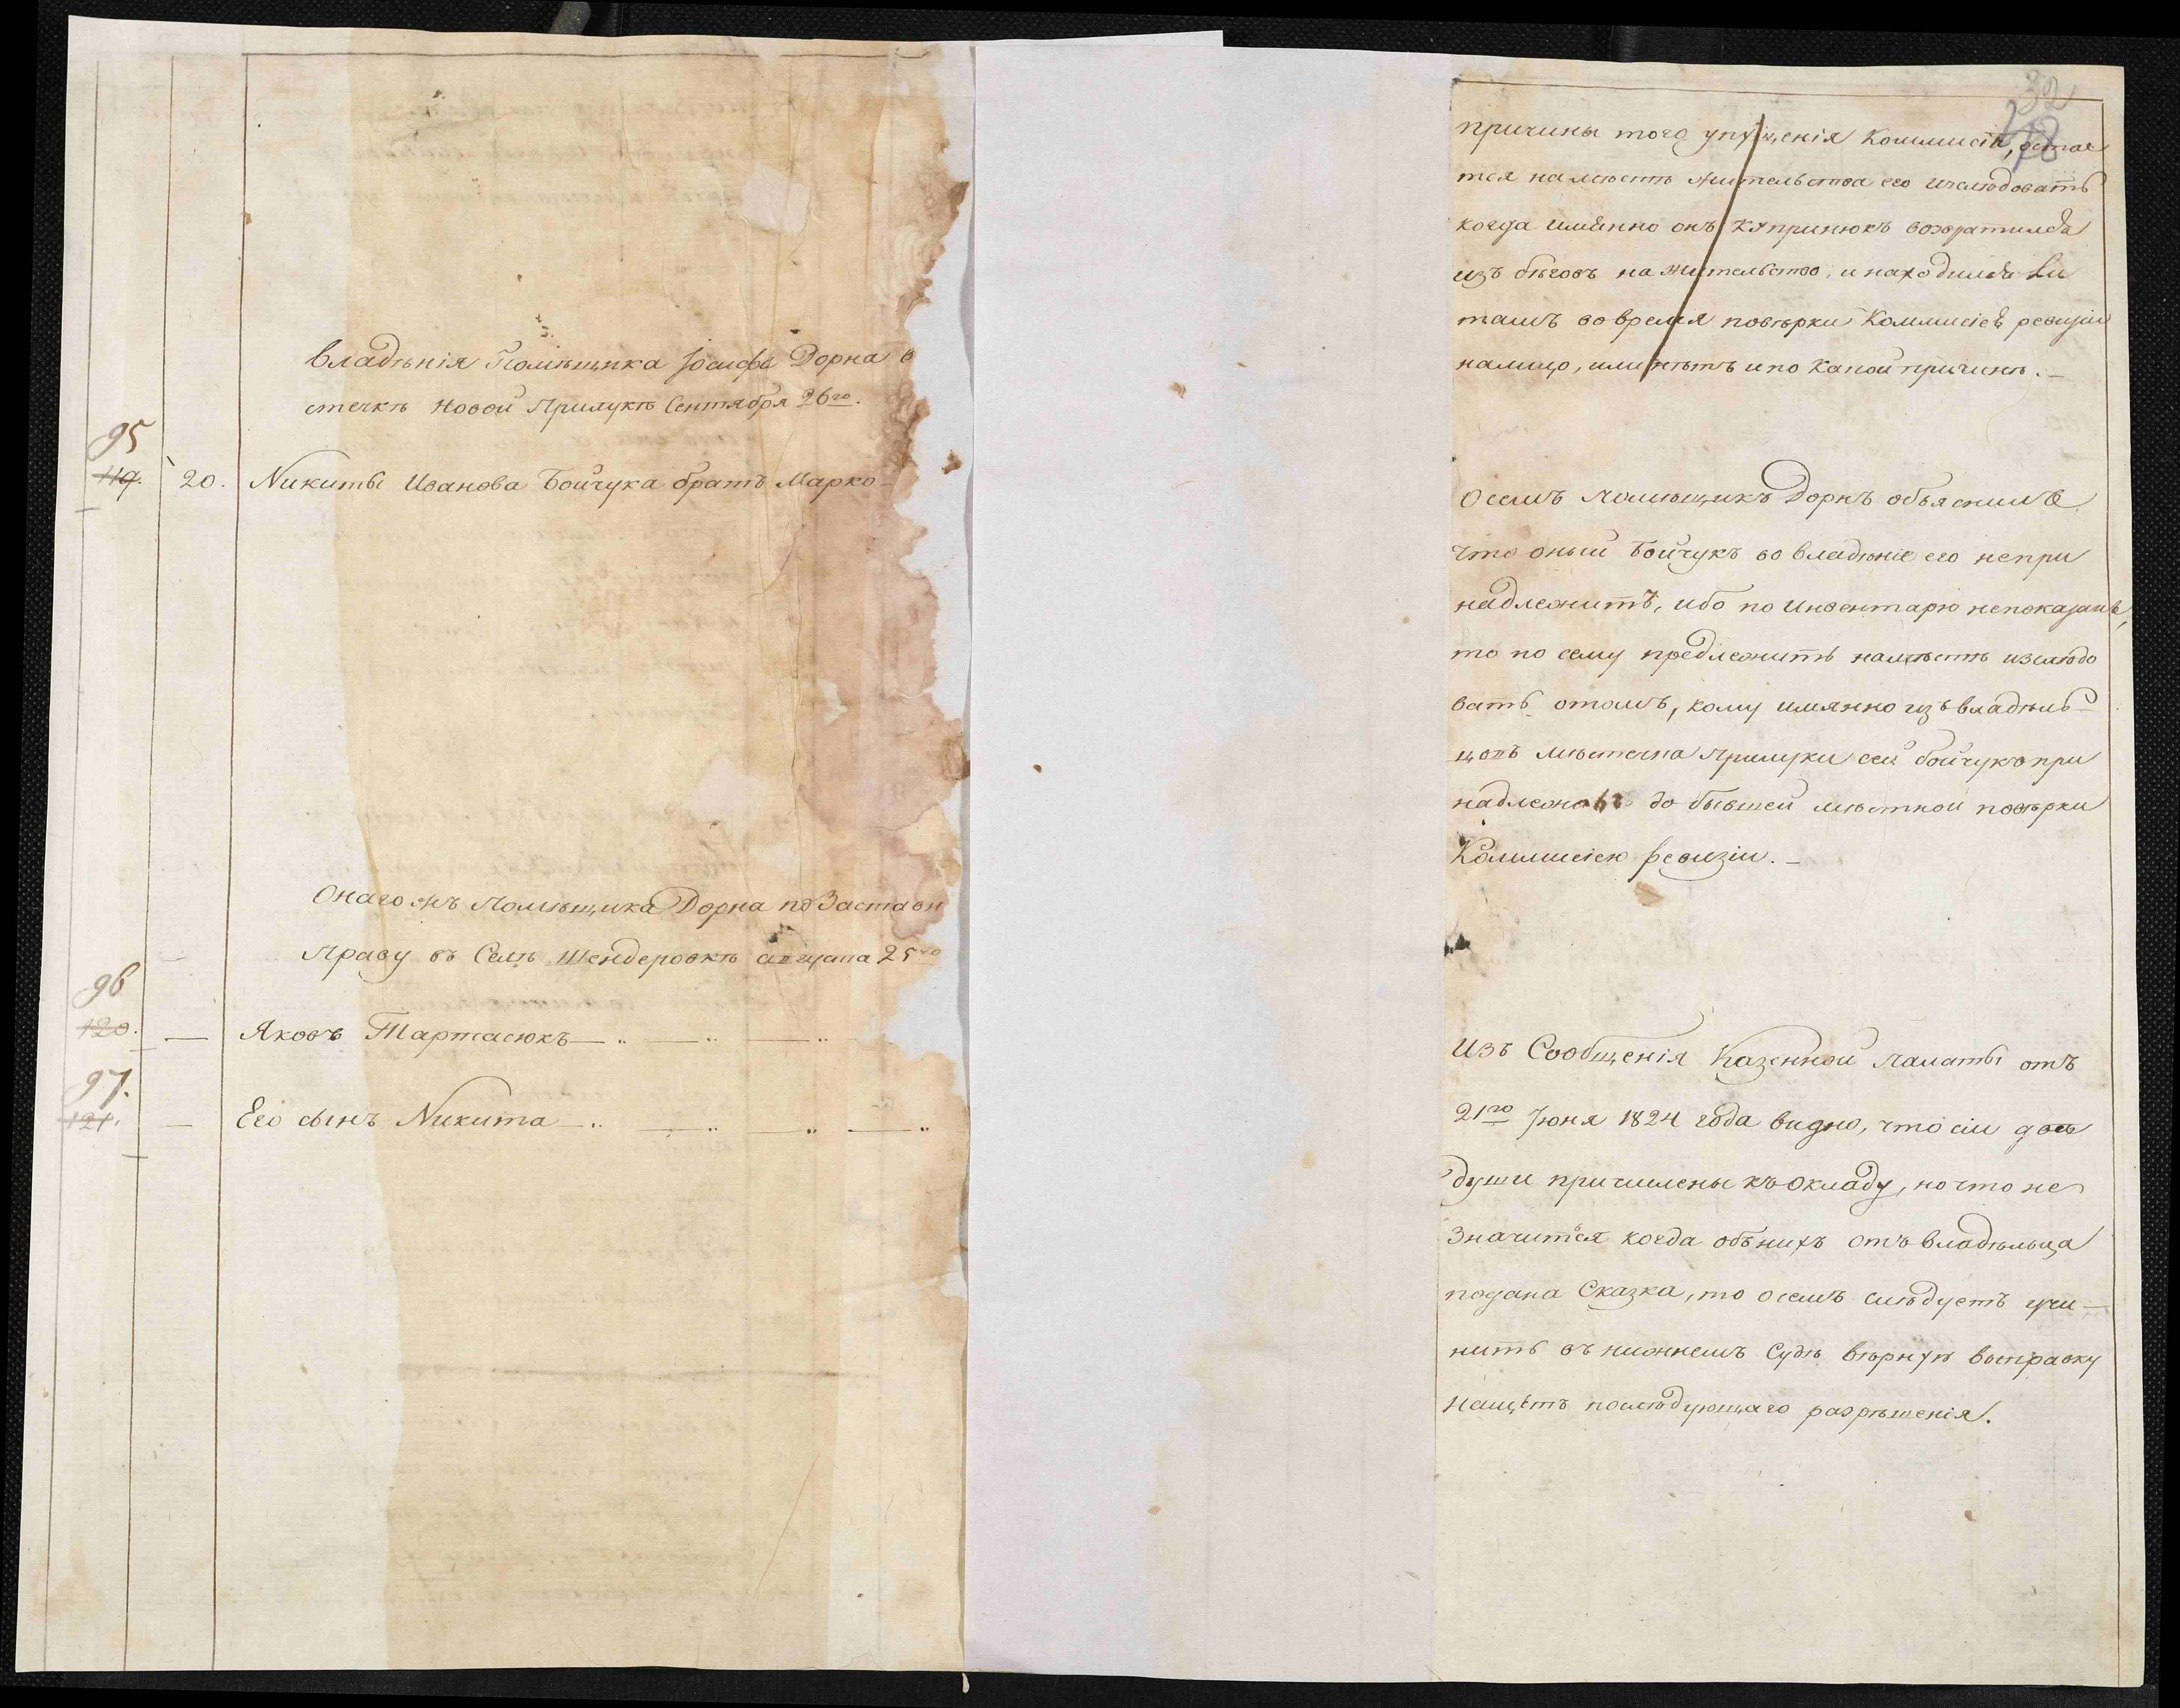 Владѣнія Помѣщика Іосифа Дорна в
стечкѣ Новой Прилукѣ Сентября 26го.
95
119. 20. Никиты Иванова Бойчука братъ Марко
Онаго жъ Помѣщика Дорна по Заставн
Праву въ Селѣ Шендеровкѣ августа 25го
96
120. — Яковъ Тартасюкъ
97.
121. — Его сынъ Никита
32
причины того упущенія Коммисіи, остае
тся на мѣстѣ жительства его изслѣдовать
когда имянно онъ Купринюкъ возвратился
изъ бѣговъ на жительство, и находился ли
тамъ во время повѣрки Коммисіею ревизіи
налицо, или нѣтъ и по какой причинѣ.
О семъ Помѣщикъ Дорнъ объяснилъ
что оный Бойчукъ во владѣніе его непри
надлежитъ, ибо по Инвентарю непоказанъ,
то по сему предлежитъ намѣстѣ изслѣдо
вать отомъ, кому имянно изъ владѣль
цовъ мѣстечка Прилуки сей Бойчукъ при
надлежалъ до бывшей мѣстной повѣрки
Коммисіею ревизіи.
Изъ Сообщенія Казенной Палаты отъ
21го Іюня 1824 года видно, что сіи двѣ
души причислены къ окладу, но что не
значится когда объ нихъ отъ владѣльца
подана Сказка, то осемъ слѣдуетъ учи-
нить въ нижнемъ Судѣ вѣрную выправку
нащетъ послѣдующаго разрѣшенія.